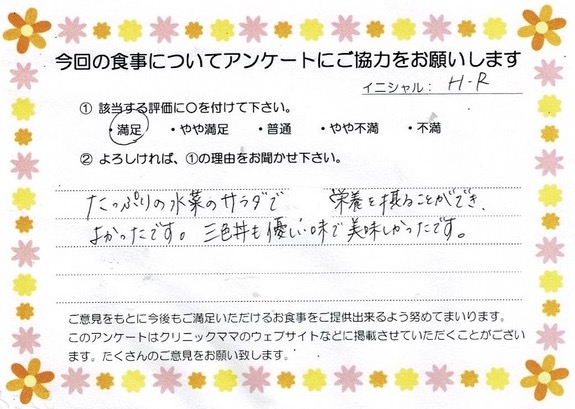 今回の食事についてアンケートにご協力をお願いします
イニシャル： H-R
① 該当する評価に○を付けて下さい。
・満足 ・やや満足 ・普通 ・やや不満 ・不満
② よろしければ、①の理由をお聞かせ下さい。
たっぷりの水菜のサラダで 栄養を摂ることができ、
よかったです。三色丼も優しい味で美味しかったです。
ご意見をもとに今後もご満足いただけるお食事をご提供出来るよう努めてまいります。
このアンケートはクリニックママのウェブサイトなどに掲載させていただくことがござい
ます。たくさんのご意見をお願い致します。